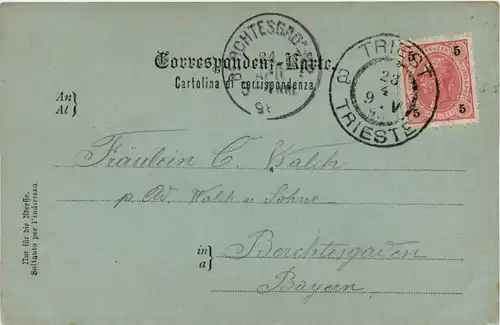 BERCHTESGADEN
24
APR.
98
TRIEST
23
4
9 V
TRIESTE
5 5
5 5
Correspondenz-Karte.
Cartolina di corrispondenza.
An
Al
Fräulein C. Walch
p. Ad. Walch u Söhne
in
a
Berchtesgaden
Bayern
Nur für die Adresse.
Soltanto per l'indirizzo.